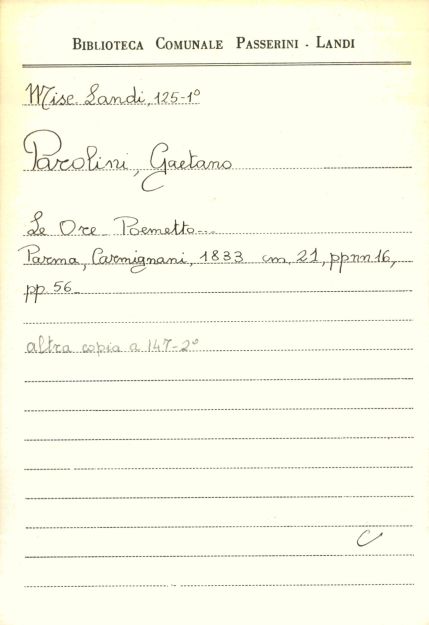 BIBLIOTECA COMUNALE PASSERINI - LANDI
Misc. Landi, 125-1°
Parolini, Gaetano
Le Ore Poemetto...
Parma, Carmignani, 1833 cm. 21, ppnn 16,
pp. 56.
altra copia a 147-2°
C